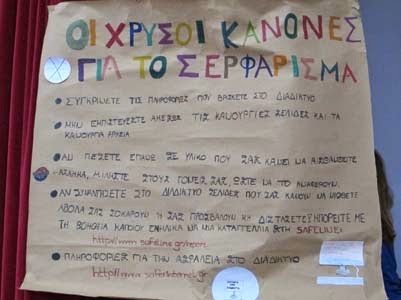 ΟΙ ΧΡΥΣΟΙ ΚΑΝΟΝΕΣ
ΓΙΑ ΤΟ ΣΕΡΦΑΡΙΣΜΑ
ΣΥΓΚΡΙΝΕΤΕ ΤΙΣ ΠΛΗΡΟΦΟΡΙΕΣ ΠΟΥ ΒΡΙΣΚΕΤΕ ΣΤΟ ΔΙΑΔΙΚΤΥΟ
ΜΗΝ ΕΜΠΙΣΤΕΥΕΣΤΕ ΑΜΕΣΩΣ ΤΙΣ ΚΑΙΝΟΥΡΓΙΕΣ ΣΕΛΙΔΕΣ ΚΑΙ ΤΑ
ΚΑΙΝΟΥΡΓΙΑ ΑΡΧΕΙΑ
ΑΝ ΠΕΣΕΤΕ ΕΠΑΝΩ ΣΕ ΥΛΙΚΟ ΠΟΥ ΣΑΣ ΚΑΝΕΙ ΝΑ ΑΙΣΘΑΝΕΣΤΕ
ΑΣΧΗΜΑ, ΜΙΛΗΣΤΕ ΣΤΟΥΣ ΓΟΝΕΙΣ ΣΑΣ, ΩΣΤΕ ΝΑ ΤΟ ΑΝΑΦΕΡΟΥΝ.
ΑΝ ΣΥΝΑΝΤΗΣΕΤΕ ΣΤΟ ΔΙΑΔΙΚΤΥΟ ΣΕΛΙΔΕΣ ΠΟΥ ΣΑΣ ΚΑΝΟΥΝ ΝΑ ΝΙΩΘΕΤΕ
ΑΒΟΛΑ ΣΑΣ ΣΟΚΑΡΟΥΝ Ή ΣΑΣ ΠΡΟΣΒΑΛΟΥΝ ΜΗ ΔΙΣΤΑΣΕΤΕ! ΜΠΟΡΕΙΤΕ ΜΕ
ΤΗ ΒΟΗΘΕΙΑ ΚΑΠΟΙΟΥ ΕΝΗΛΙΚΑ ΝΑ ΜΙΑ ΚΑΤΑΓΓΕΛΙΑ ΣΤΗ SAFELINE:
http://www.safeline.gr/report
ΠΛΗΡΟΦΟΡΙΕΣ ΓΙΑ ΤΗΝ ΑΣΦΑΛΕΙΑ ΣΤΟ ΔΙΑΔΙΚΤΥΟ
http://www.saferinternet.gr